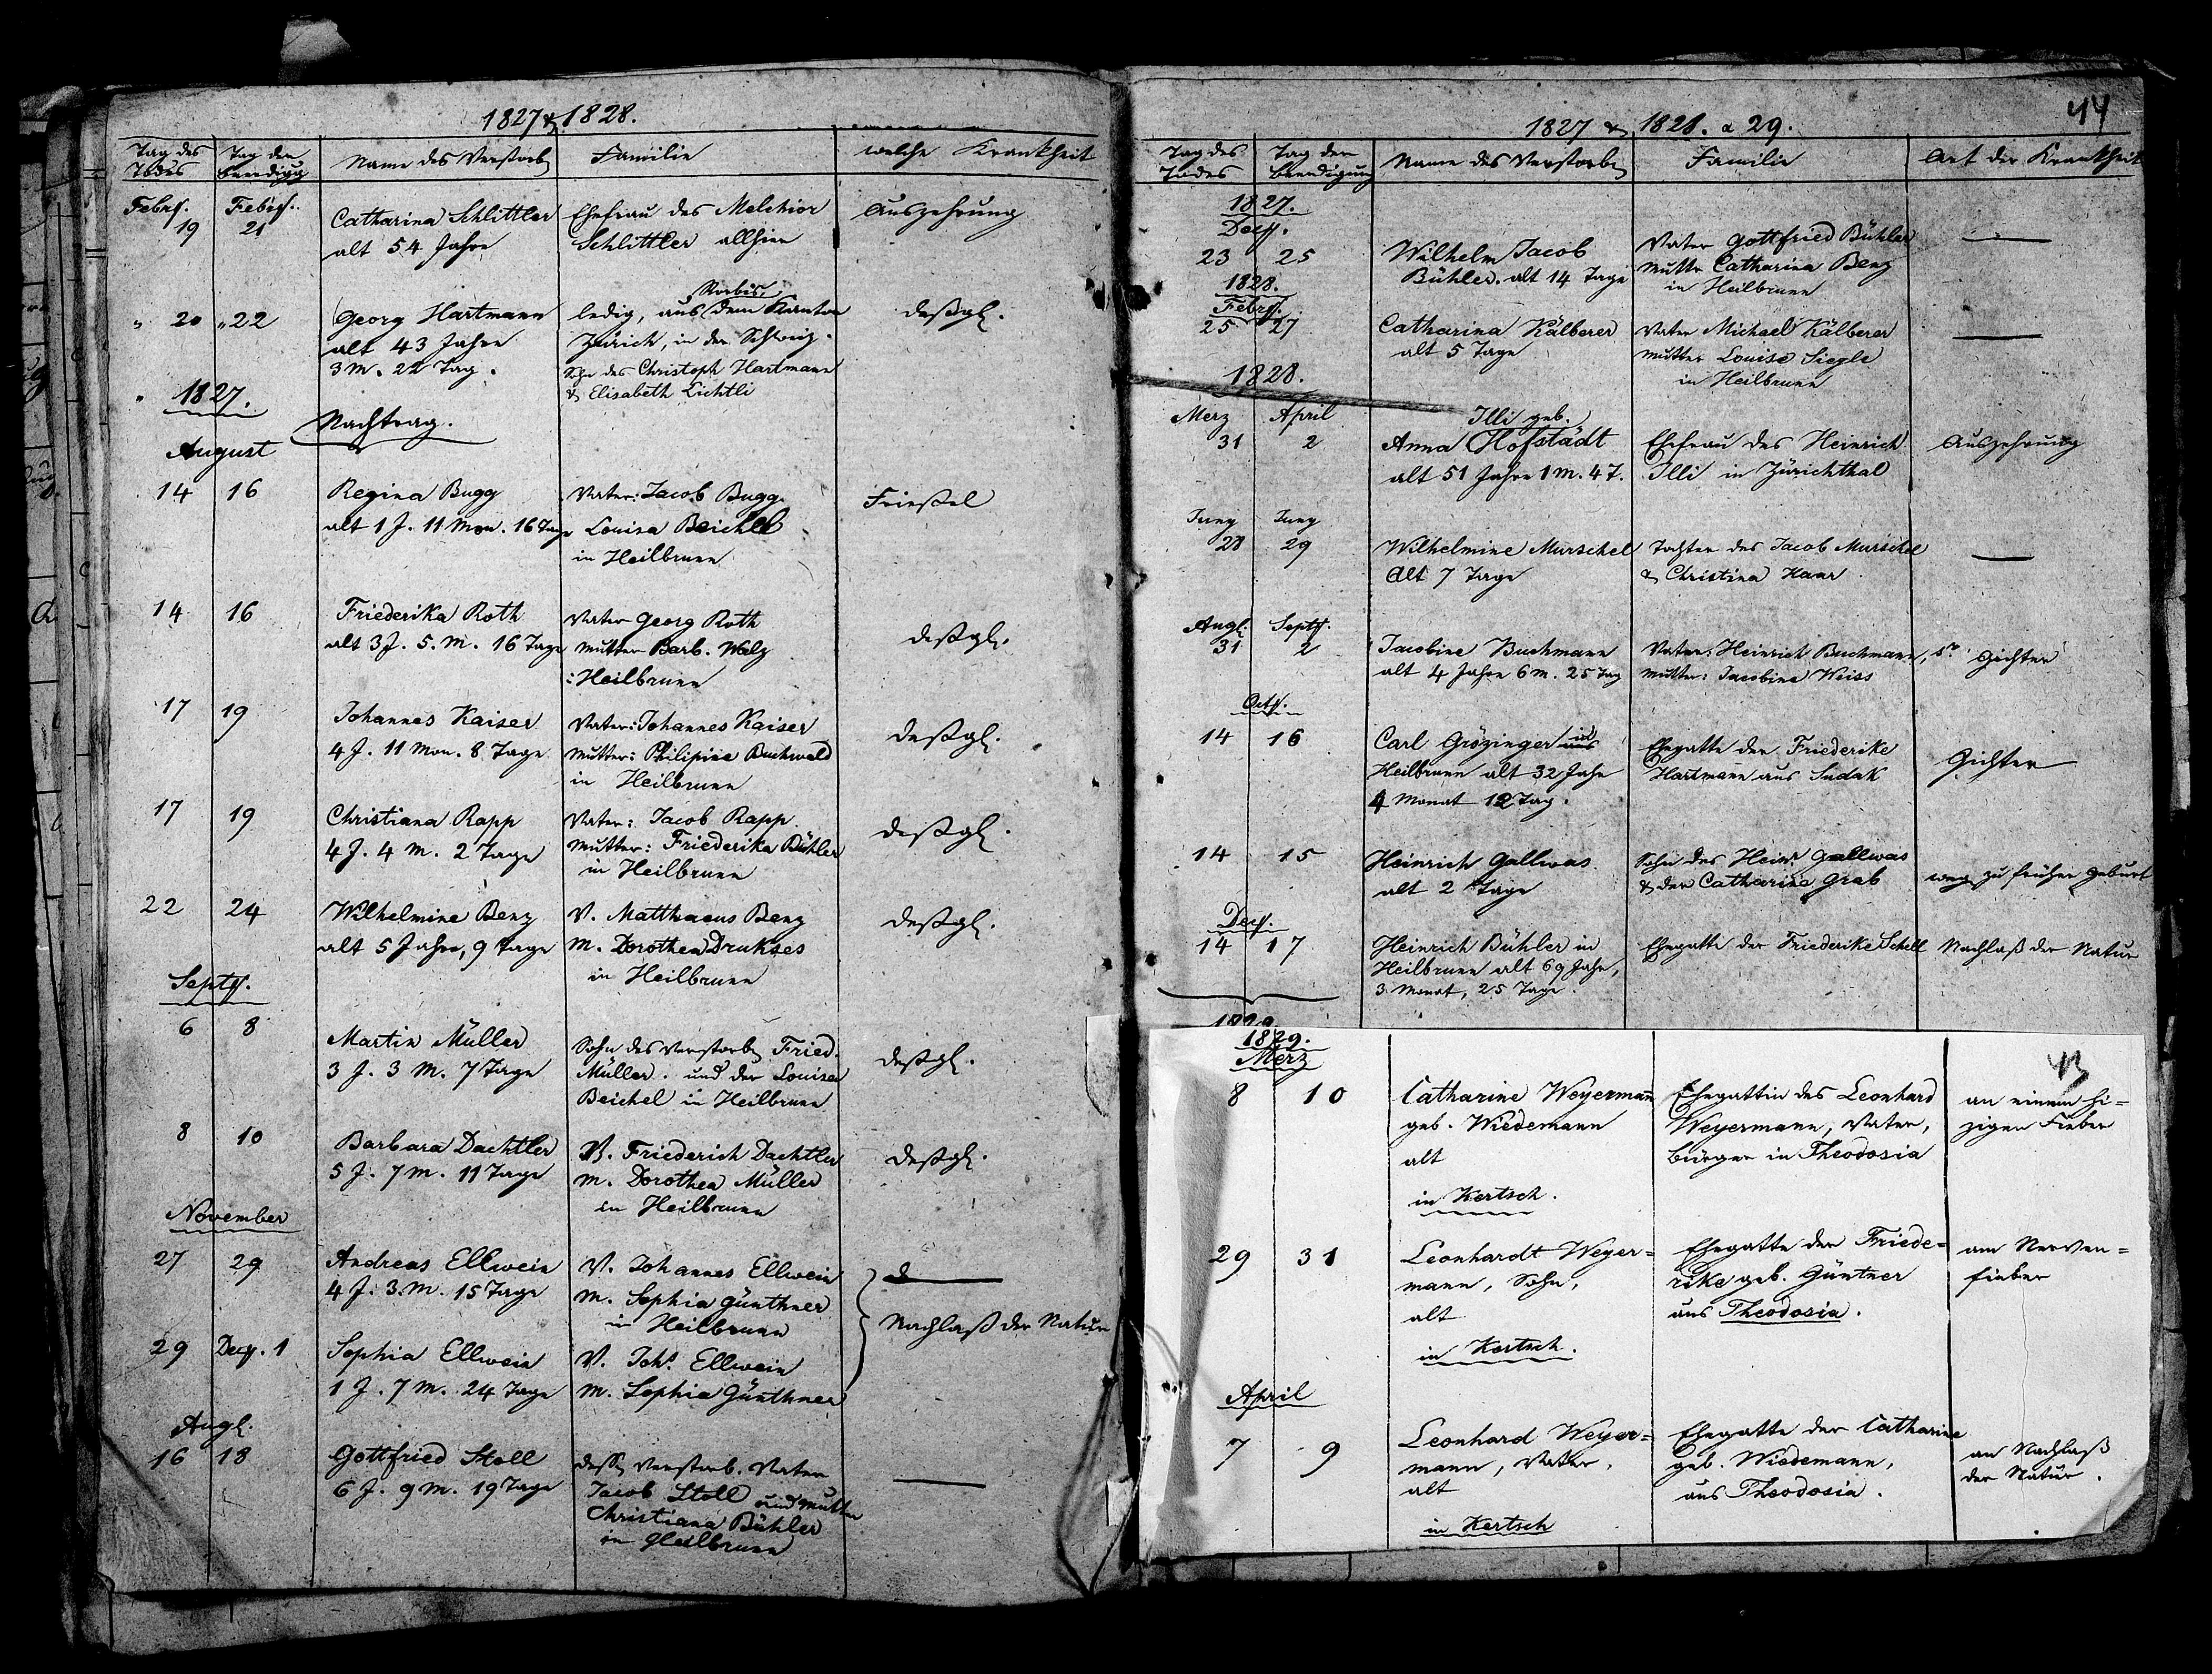 1827 & 1828.
Tag des Todes
Tag der Beerdigg
Name des Verstorb
Familie
welche Krankheit
Febry. 19
Febry. 21
Catharina Schlittler
alt 54 Jahre
Ehefrau des Melchior
Schlittler allhier
Auszehrung
" 20
" 22
Georg Hartmann
alt 43 Jahre
3 M. 22 Tag.
ledig, aus dem Kanton
Zürich, in der Schweiz.
Sohn des Christoph Hartmann
& Elisabeth Lichtli
deßgl.
1827.
Nachtrag.
August
14
16
Regina Bugg
alt 1 J. 11 Mon. 16 Tage
Vater: Jacob Bugg.
Louisa Beichel
in Heilbrunn
Frießel
14
16
Friederika Roth
alt 3 J. 5. M. 16 Tage
Vater Georg Roth
Mutter Barb. Welz
: Heilbrunn
deßgl.
17
19
Johannes Kaiser
4 J. 11 Mon. 8 Tage
Vater: Johannes Kaiser
Mutter: Philipine Buchwald
in Heilbrunn
deßgl.
17
19
Christiana Rapp
4 J. 4 M. 2 Tage
Vater: Jacob Rapp
Mutter: Friederika Bühler
in Heilbrunn
deßgl.
22
24
Wilhelmine Benz
alt 5 Jahre, 9 Tage
V. Matthaeus Benz
M. Dorothea Drukses
in Heilbrunn
deßgl.
Septr.
6
8
Martin Müller
3 J. 3 M. 7 Tage
Sohn des verstorb Fried.
Müller. und der Louisa
Beichel in Heilbrunn
deßgl.
8
10
Barbara Dachtler
5 J. 7 M. 11 Tage
V. Friederich Dachtler
M. Dorothea Müller
in Heilbrunn
deßgl.
November
27
29
Andreas Ellwein
4 J. 3 M. 15 Tage
V. Johannes Ellwein
M. Sophia Günthner
in Heilbrunn
Nachlaß der Natur
29
Decr. 1
Sophia Ellwein
1 J. 7 M. 24 Tage
V. Johs. Ellwein
M. Sophia Günthner
Augt.
16
18
Gottfried Stoll
6 J. 9 M. 19 Tage
verstorb. Vater
Jacob Stoll und Mutter
Christiana Bühler
in Heilbrunn
44
1827 & 1828. & 29.
Tag des Todes
Tag der Beerdigung
Name des Verstorb
Familie
Art der Krankheit
1827.
Decr.
23
25
Wilhelm Jacob
Bühler. alt 14 Tage
Vater Gottfried Bühler
Mutter Catharina Benz
in Heilbrunn
1828.
Febry.
25
27
Catharina Kälberer
alt 5 Tage
Vater Michael Kälberer
Mutter Louisa Siegle
in Heilbrunn
1828.
Merz
31
April
2
Illi geb.
Anna Hofstädt
alt 51 Jahre 1 M. 4 T.
Ehefrau des Heinrich
Illi in Zürichthal
Auszehrung
Juny
28
Juny
29
Wilhelmine Murschel
alt 7 Tage
Tochter des Jacob Murschel
& Christina Haar
Augt.
31
Septr.
2
Jacobine Buchmann
alt 4 Jahre 6 M. 25 Tag
Vater: Heinrich Buchmann,
Mutter: Jacobine Weiss
Gichter
Octr.
14
16
Carl Grözinger in
Heilbrunn alt 32 Jahr
4 Monat 12 Tag.
Ehegatte der Friederike
Hartmann aus Sudak
Gichter
14
15
Heinrich Gallwas
alt 2 Tage
Sohn des Heinr Gallwas
& der Catharina Grab
weg. zu früher Geburt
Decr.
14
17
Heinrich Bühler in
Heilbrunn alt 69 Jahr,
3 Monat, 25 Tage.
Ehegatte der Friederike Schell
Nachlaß der Natur
1829.
1829.
Merz
43
8
10
Catharine Weyermann
geb. Wiedemann
alt
in Kertsch.
Ehegattin des Leonhard
Weyermann, Vater,
Bürger in Theodosia
an einem hi=
zigen Fieber
29
31
Leonhardt Weyer=
mann, Sohn,
alt
in Kertsch.
Ehegatte der Friede=
rike geb. Güntner
aus Theodosia.
am Nerven=
fieber
April
7
9
Leonhard Weyer=
mann, Vater,
alt
in Kertsch
Ehegatte der Catharine
geb. Wiedemann,
aus Theodosia.
an Nachlaß
der Natur.